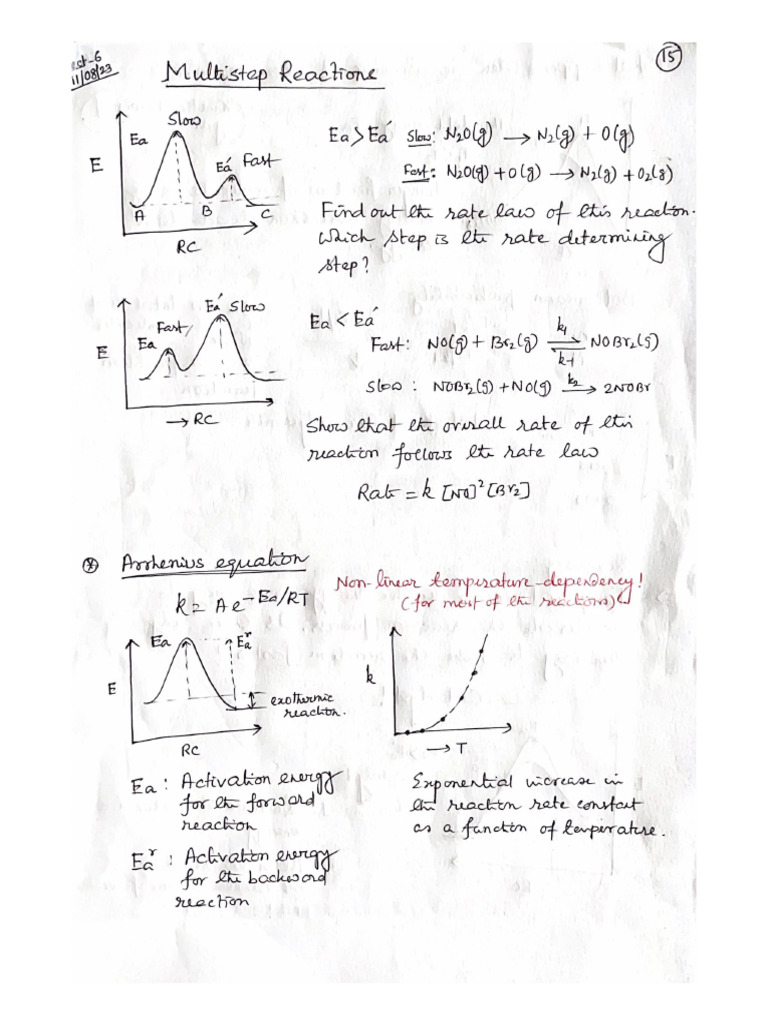 15
11/08/23
Multistep Reactions
Slow
Ea
Ea' Fast
E
A B C
RC
Ea > Ea' Slow: N2O(g) → N2(g) + O(g)
Fast: N2O(g) + O(g) → N2(g) + O2(g)
Find out the rate law of this reaction.
Which step is the rate determining
step?
Ea' Slow
Fast
Ea
E
→ RC
Ea < Ea'
Fast: NO(g) + Br2(g) ⇌ NOBr2(g)
k1
k-1
Slow: NOBr2(g) + NO(g) k2→ 2NOBr
Show that the overall rate of this
reaction follows the rate law
Rate = k [NO]² [Br2]
⊛ Arrhenius equation
k = A e^-Ea/RT
Non-linear temperature-dependency!
(for most of the reactions)
Ea
Ea^r
E
exothermic
reaction.
RC
k
→ T
Ea: Activation energy
for the forward
reaction
Ea^r: Activation energy
for the backward
reaction
Exponential increase in
the reaction rate constant
as a function of temperature.